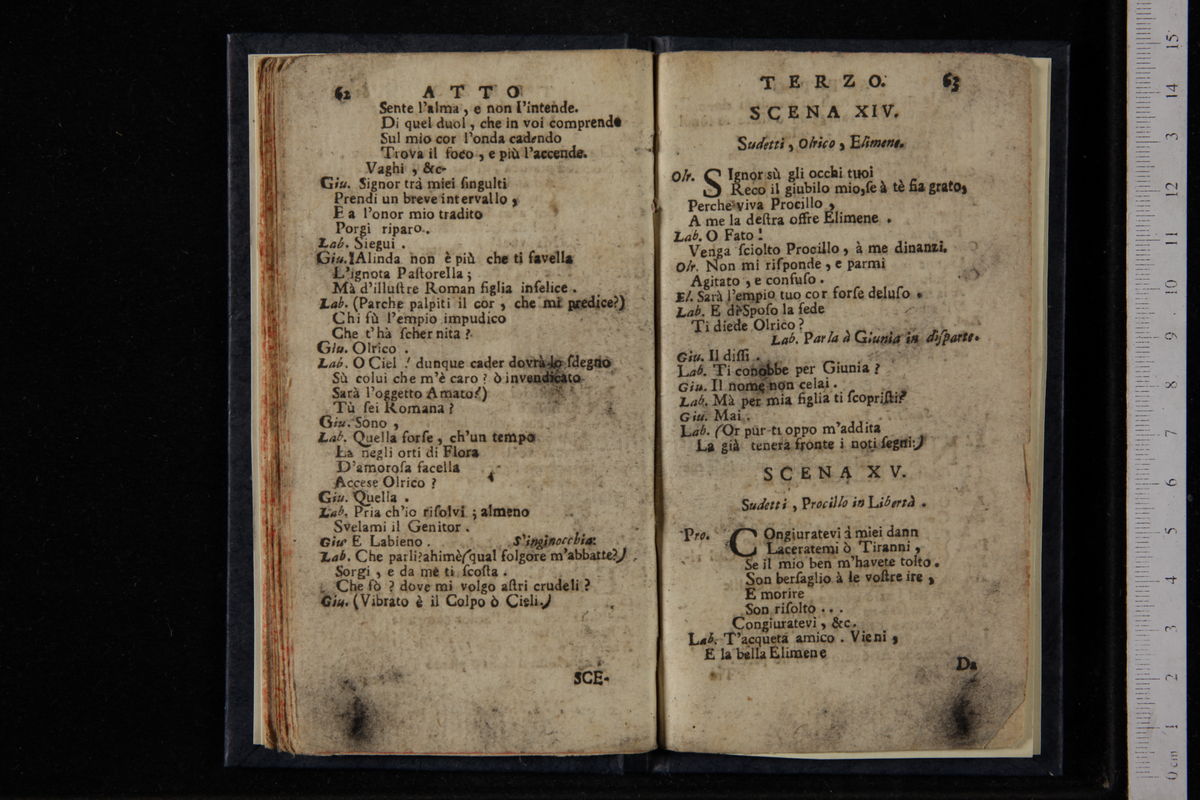 62 ATTO
Sente l'alma, e non l'intende.
Di quel duol, che in voi comprende
Sul mio cor l'onda cadendo
Trova il foco, e più l'accende.
Vaghi, &c.
Giu. Signor trà miei ſingulti
Prendi un breve intervallo,
E a l'onor mio tradito
Porgi riparo.
Lab. Siegui.
Giu. Alinda non è più che ti favella
L'ignota Paſtorella;
Mà d'illuſtre Roman figlia infelice.
Lab. (Parche palpiti il cor, che mi predice?)
Chi fù l'empio impudico
Che t'hà ſchernita?
Giu. Olrico.
Lab. O Ciel! dunque cader dovrà lo ſdegno
Sù colui che m'è caro? ò invendicato
Sarà l'oggetto Amato?)
Tù ſei Romana?
Giu. Sono,
Lab. Quella forſe, ch'un tempo
La negli orti di Flora
D'amoroſa facella
Acceſe Olrico?
Giu. Quella.
Lab. Pria ch'io riſolvi; almeno
Svelami il Genitor.
Giu E Labieno. S'inginocchia.
Lab. Che parli? ahimè (qual folgore m'abbatte?)
Sorgi, e da me ti ſcoſta.
Che fò? dove mi volgo aſtri crudeli?
Giu. (Vibrato è il Colpo ò Cieli.)
SCE-
TERZO. 63
SCENA XIV.
Sudetti, Olrico, Elimene.
Olr. SIgnor sù gli occhi tuoi
Reco il giubilo mio, ſe à tè fia grato,
Perche viva Procillo,
A me la deſtra offre Elimene.
Lab. O Fato!
Venga ſciolto Procillo, à me dinanzi.
Olr. Non mi riſponde, e parmi
Agitato, e confuſo.
El. Sarà l'empio tuo cor forſe deluſo.
Lab. E di Spoſo la fede
Ti diede Olrico?
Lab. Parla à Giunia in diſparte.
Giu. Il diſſi.
Lab. Ti conobbe per Giunia?
Giu. Il nome non celai.
Lab. Mà per mia figlia ti ſcopriſti?
Giu. Mai.
Lab. (Or pur ti oppo m'addita
La già tenera fronte i noti ſegni:)
SCENA XV.
Sudetti, Procillo in Libertà.
Pro. COngiuratevi à miei dann
Laceratemi ò Tiranni,
Se il mio ben m'havete tolto.
Son berſaglio à le voſtre ire,
E morire
Son riſolto...
Congiuratevi, &c.
Lab. T'acqueta amico. Vieni,
E la bella Elimene
Da
15
14
13
12
11
10
9
8
7
6
5
4
3
2
1
0 cm